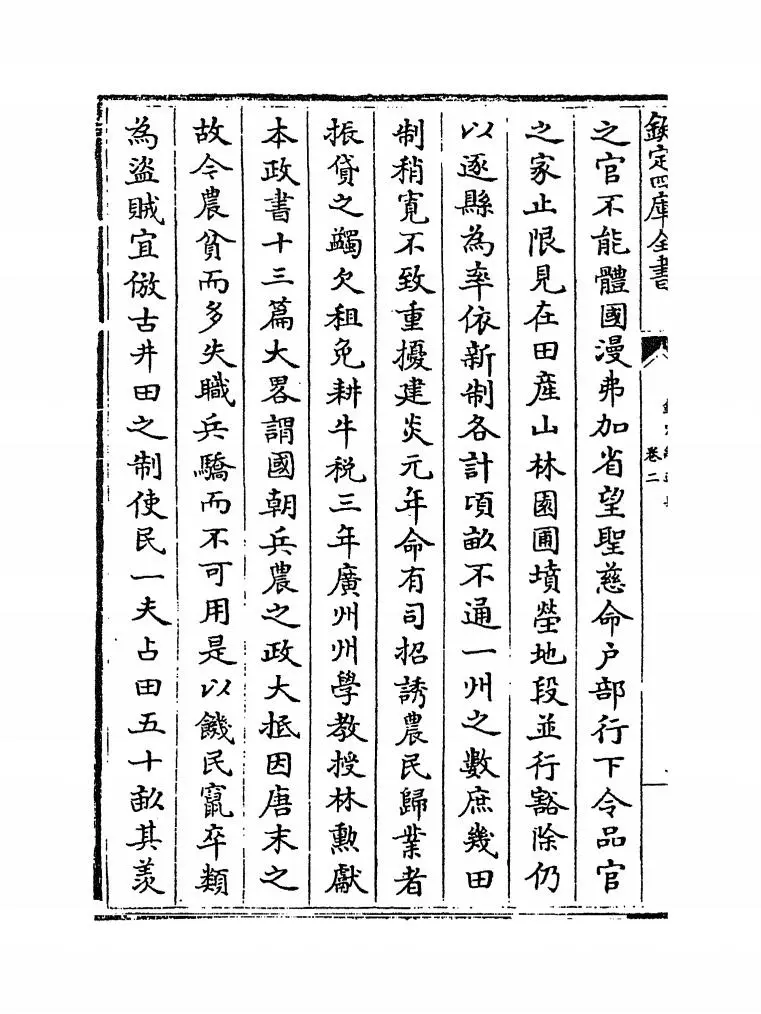 欽定四庫全書
卷二
之官不能體國漫弗加省望聖慈命戶部行下令品官
之家止限見在田產山林園圃墳塋地段並行豁除仍
以逐縣為率依新制各計頃畝不通一州之數庶幾田
制稍寬不致重擾建炎元年命有司招誘農民歸業者
振貸之蠲欠租免耕牛税三年廣州州學教授林勲獻
本政書十三篇大畧謂國朝兵農之政大抵因唐末之
故今農貧而多失職兵驕而不可用是以饑民竄卒類
為盜賊宜倣古井田之制使民一夫占田五十畝其羨